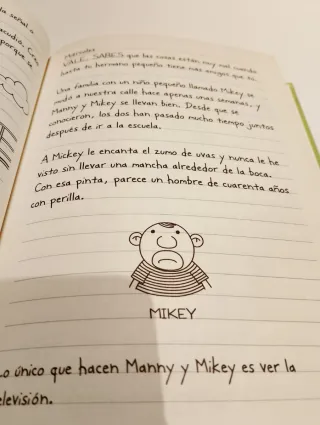 la señal o
acudía. Creo
porque se
Miércoles
VALE, SABES que las cosas están muy mal cuando
hasta tu hermano pequeño tiene más amigos que tú.
Una familia con un niño pequeño llamado Mikey se
mudó a nuestra calle hace apenas unas semanas, y
Manny y Mikey se llevan bien. Desde que se
conocieron, los dos han pasado mucho tiempo juntos
después de ir a la escuela.
A Mickey le encanta el zumo de uvas y nunca le he
visto sin llevar una mancha alrededor de la boca.
Con esa pinta, parece un hombre de cuarenta años
con perilla.
MIKEY
Lo único que hacen Manny y Mikey es ver la
televisión.